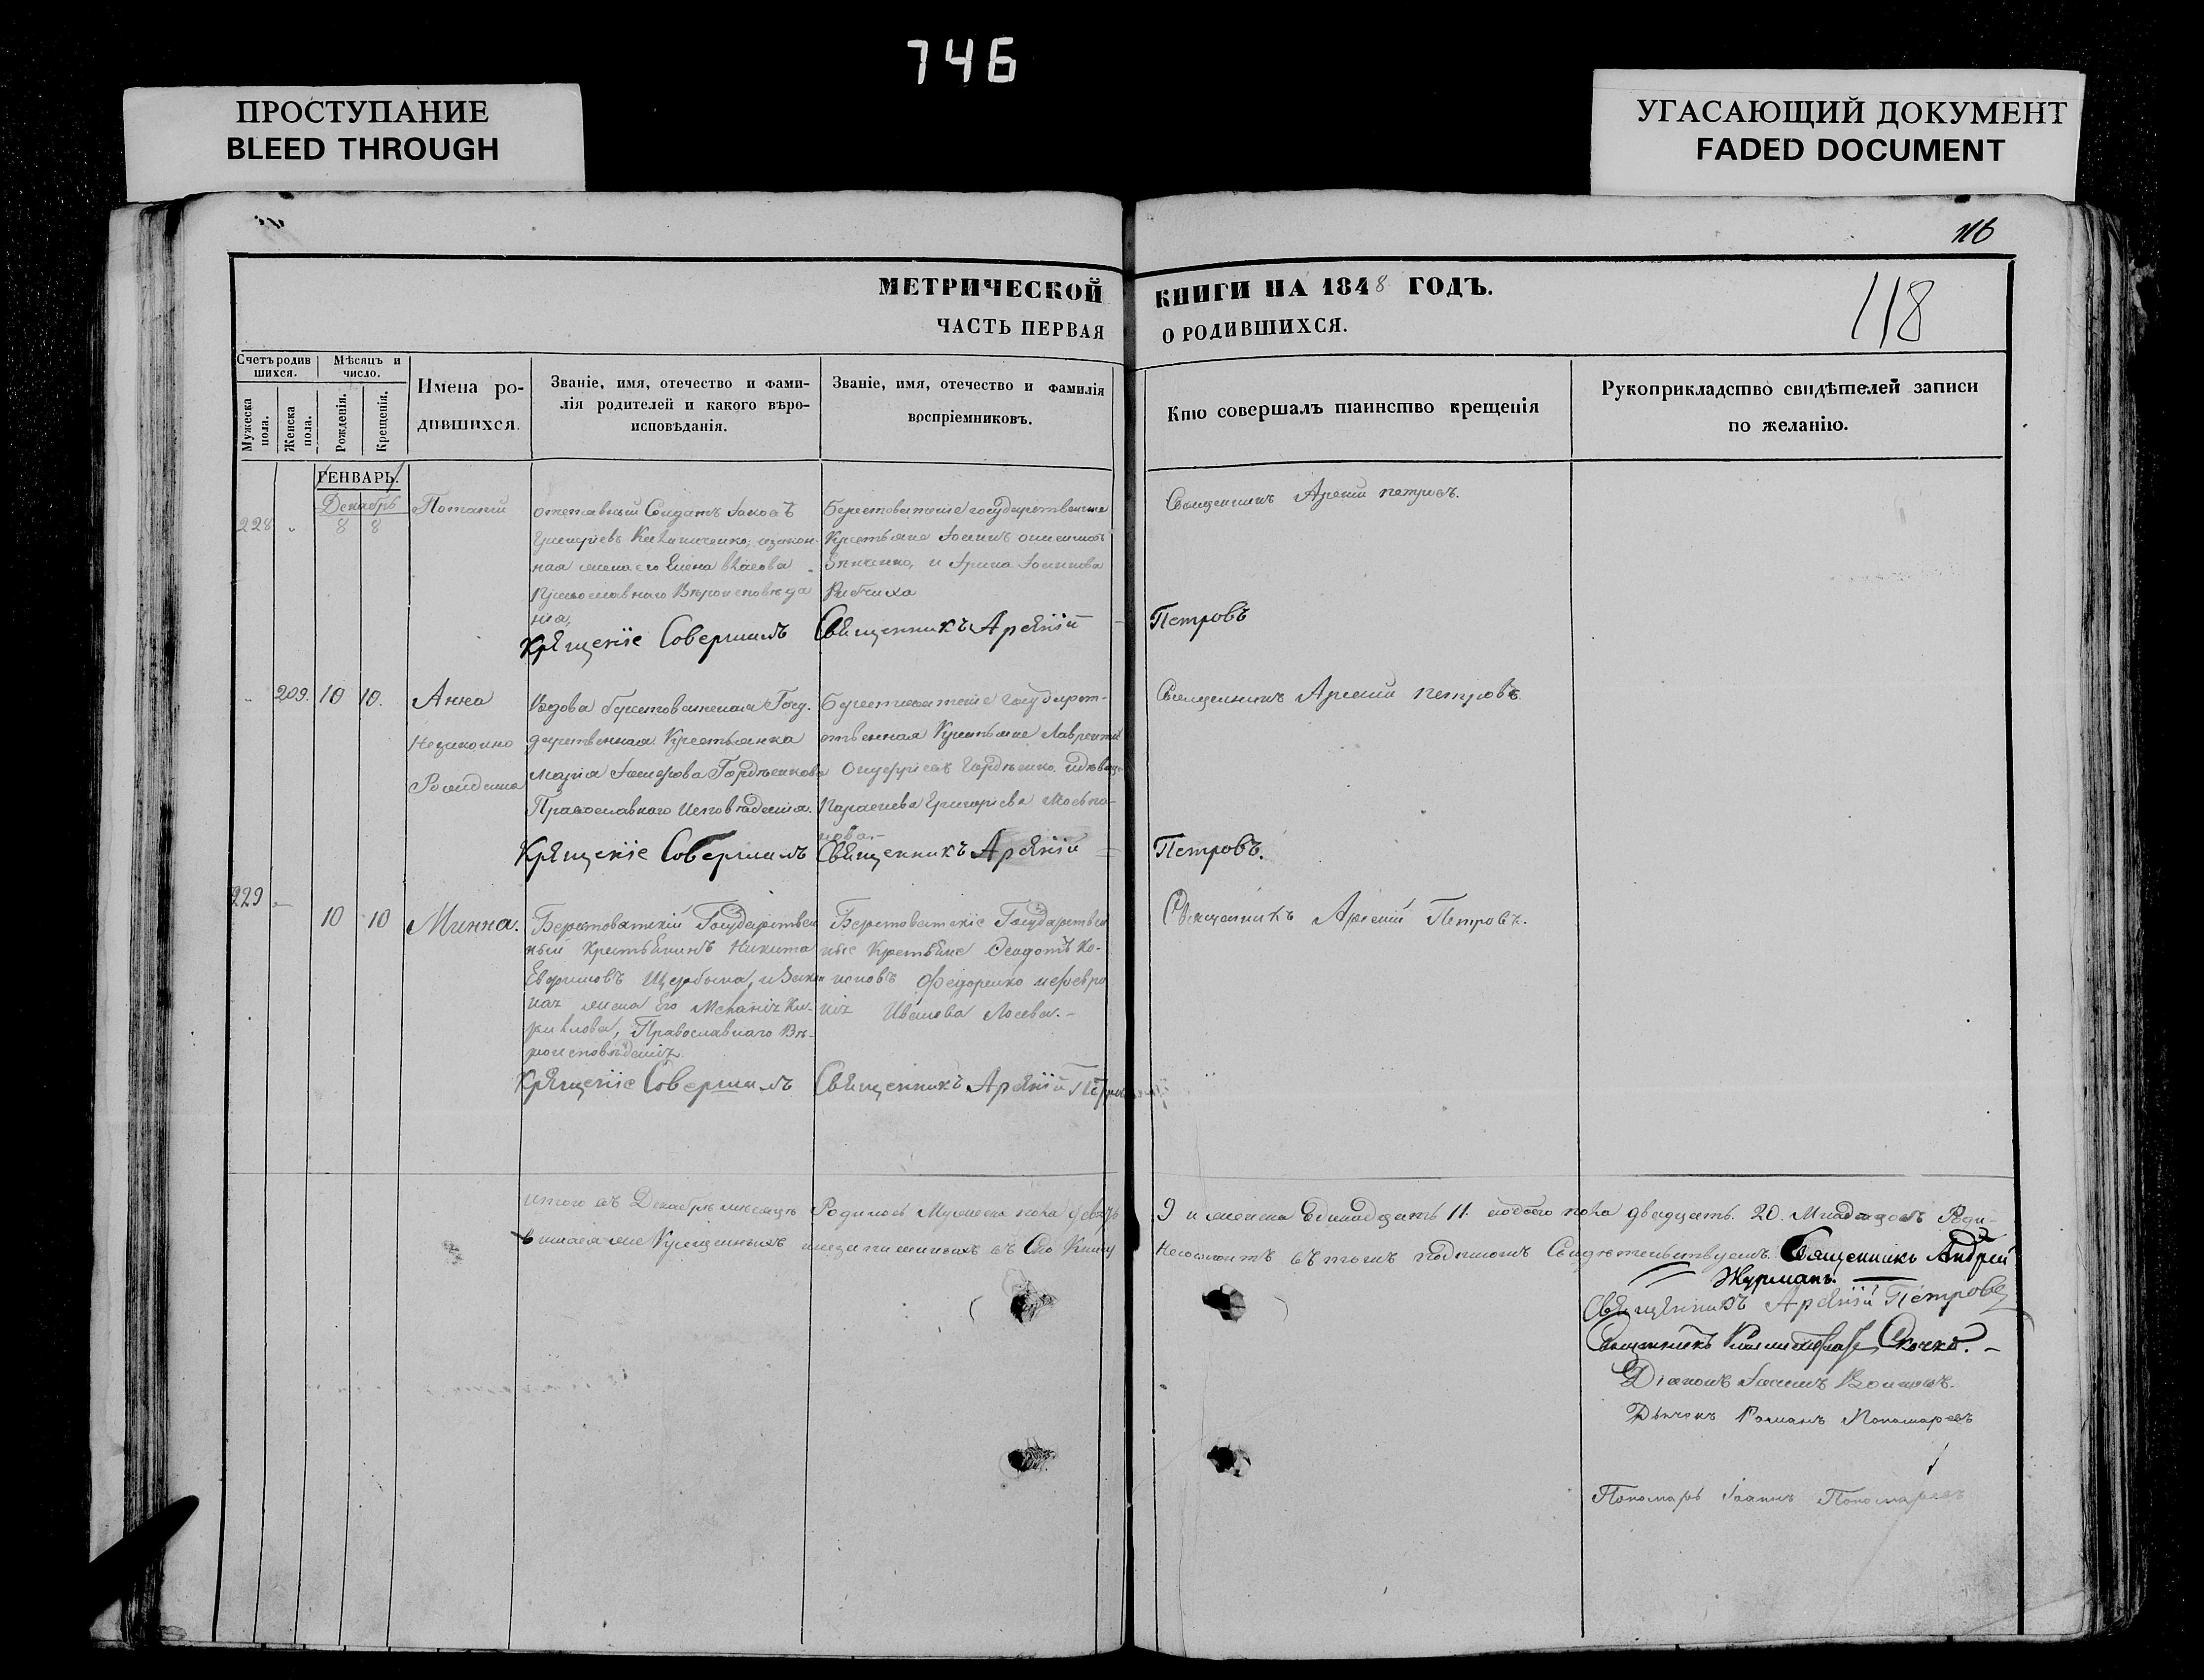 746
ПРОСТУПАНИЕ
BLEED THROUGH
УГАСАЮЩИЙ ДОКУМЕНТ
FADED DOCUMENT
116
118
МЕТРИЧЕСКОЙ КНИГИ НА 1848 ГОДЪ.
ЧАСТЬ ПЕРВАЯ О РОДИВШИХСЯ.
Счетъ родив
шихся.
Мужеска пола.
Женска пола.
Мѣсяцъ и
число.
Рожденія.
Крещенія.
Имена ро-
дившихся.
Званіе, имя, отечество и фами-
лія родителей и какого вѣро-
исповѣданія.
Званіе, имя, отечество и фамилія
воспріемниковъ.
Кто совершалъ таинство крещенія
Рукоприкладство свидѣтелей записи
по желанію.
ГЕНВАРЬ.
Декабрь
228 " 8 8
Потапій
отставный Солдатъ Іаковъ
Григоріевъ закон-
ная жена его Елена Власова
Православнаго Вѣроисповѣда
нія,
Берестоватскіе государственные
Крестьяне Іоаннъ
и Ірина Іоаннова
Священникъ Арсеній Петровъ.
Крещеніе Совершилъ Священникъ Арсеній Петровъ
" 209. 10 10.
Анна
Незаконно
Рожденна
Вдова Берестоватская Госу-
дарственная Крестьянка
Марія Гордѣенкова
Православнаго Исповѣданія.
Берестоватскіе государст-
твенная Крестьяне Лаврентій
Онуфріевъ Гордѣенко и дѣвица
Параскева Григорієва
Священникъ Арсеній Петровъ.
Крещеніе Совершилъ Священникъ Арсеній Петровъ.
229 " 10 10
Минна.
Берестоватскій Государствен
ный Крестьянинъ Никита
Евфимовъ Щербина, и Закон
ная жена Его Меланія Ки-
рилова, Православнаго Вѣ-
роисповѣданія
Берестоватскіе Государствен
ные Крестьяне Федотъ Ко-
ноновъ Федоренко и Февро
нія Иванова Лосева.-
Священникъ Арсеній Петровъ.
Крещеніе Совершилъ Священникъ Арсеній Петровъ
итого въ Декабрѣ мѣсяцѣ Родилось Мужеска пола девять 9 и женска Единадцать 11. обоего пола двадцать. 20. Младенцовъ Роди-
вшихся же Крещенныхъ и незаписанныхъ въ Сію Книгу Несостоитъ въ томъ подписомъ Свидѣтельствуемъ. Священникъ Андрей
Журманъ.
Священникъ Арсеній Петровъ
Священникъ Скочко.
Діаконъ Іоаннъ
Дьячокъ Романъ Пономаревъ
Пономарь Іоаннъ Пономаревъ